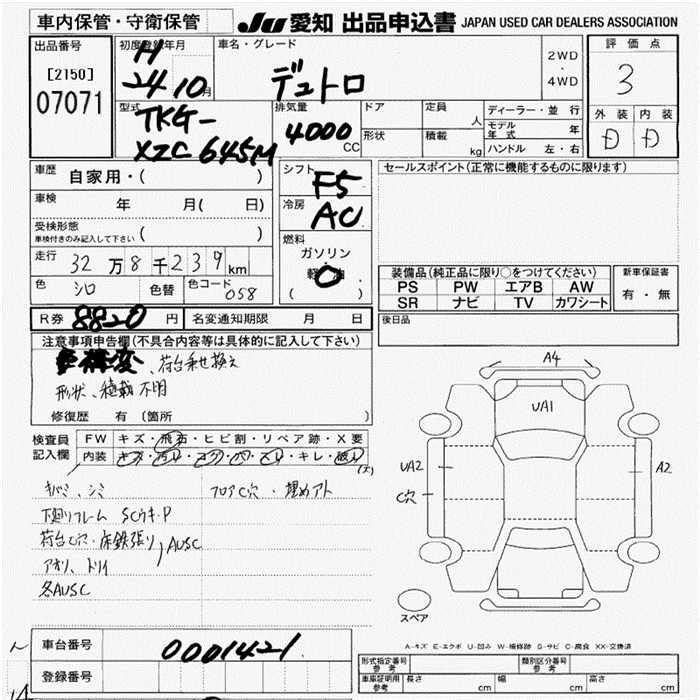 車内保管・守衛保管 JU 愛知 出品申込書 JAPAN USED CAR DEALERS ASSOCIATION
出品番号
[2150]
07071
初度登録年月
H
24 10月
車名・グレード
デュトロ
2WD
・
4WD
評価点
3
外装 内装
D D
型式
TKG-
XZC645M
排気量
4000
CC
ドア
定員
人
形状
積載
kg
ディーラー・並行
モデル年式 年
ハンドル 左・右
車歴
自家用・( )
車検
年 月( 日)
受検形態
車検付きのみ記入して下さい ( )
走行 32万8千239km
色 シロ 色替 色コード 058
シフト
F5
冷房
AC
燃料
ガソリン
軽油
( )
セールスポイント(正常に機能するものに限ります)
装備品(純正品に限り○をつけてください)
PS PW エアB AW
SR ナビ TV カワシート
新車保証書
有・無
R券 8820円 名変通知期限 月 日
後日品
注意事項申告欄(不具合内容等は具体的に記入して下さい)
構変、荷台乗せ換え
形状、積載不明
修復歴 有 (箇所 )
検査員
記入欄
FW キズ・飛石・ヒビ割・リペア跡・X要
内装 キズ・汚レ・コゲ・穴・スレ・キレ・破レ
キバミ、シミ
フロアC穴・埋めアト
下廻りフレーム SCウキ・P
荷台C穴・床鉄張り
アオリ、トリイ
AUSC
各AUSC
A4
UA1
UA2
C穴
A2
スペア
A-キズ E-エクボ U-凹み W-補修跡 S-サビ C-腐食 XX-交換済
車台番号 0001421
登録番号
形式指定番号
参考
類別区分番号
参考
車庫証明用
参考
長さ cm 幅 cm 高さ cm